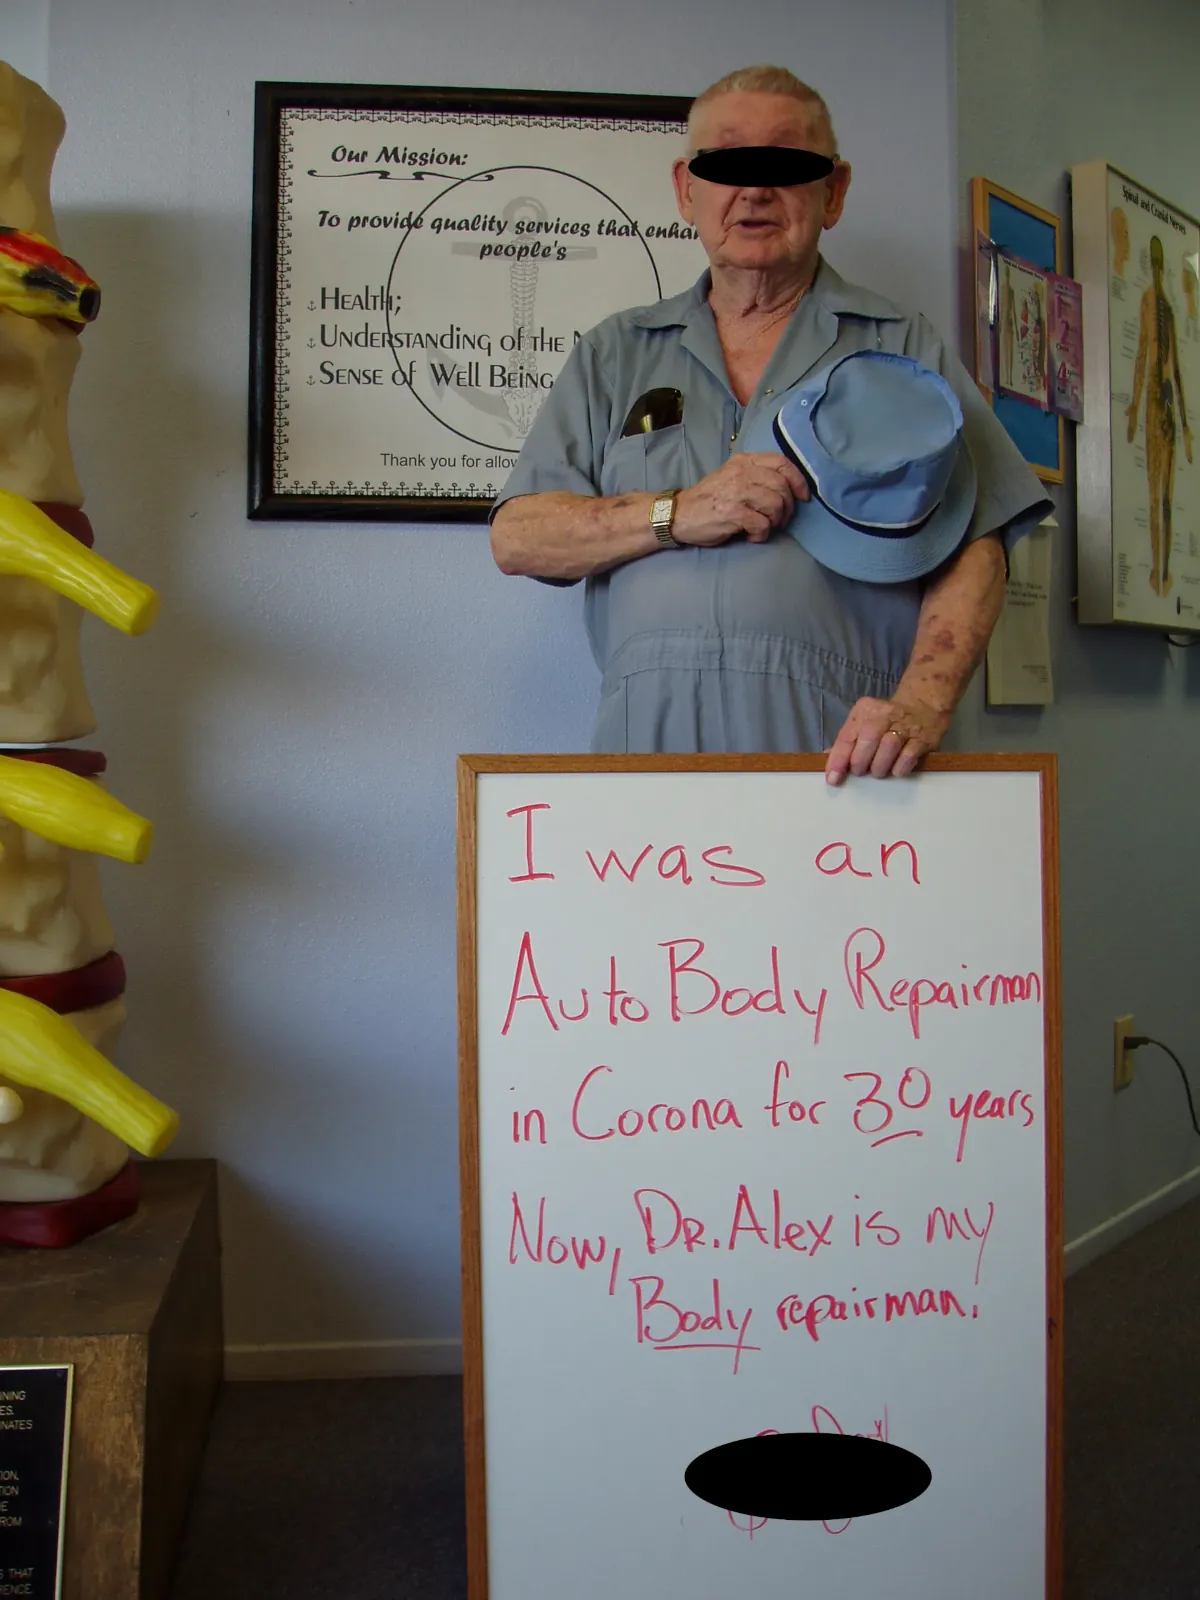 Our Mission:
To provide quality services that
people's
HEALTH;
UNDERSTANDING OF THE
SENSE OF WELL BEING
Thank you for
Spinal and Cranial Nerves
I was an
Auto Body Repairman
in Corona for 30 years
Now, DR. Alex is my
Body repairman.